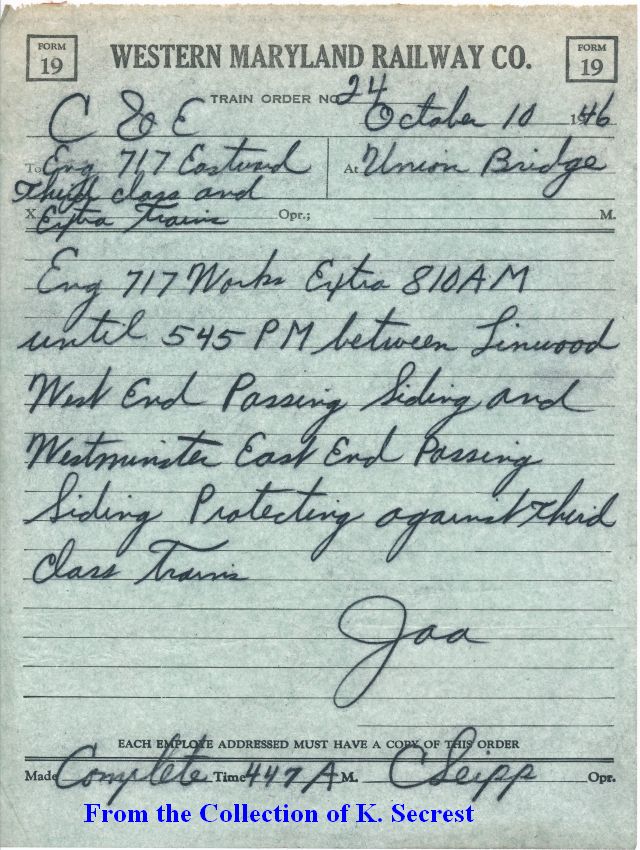 FORM 19
WESTERN MARYLAND RAILWAY CO.
FORM 19
TRAIN ORDER NO 24
C & E
October 10 1946
To Eng 717 Eastward
Third class and
At Union Bridge
X Extra Trains Opr.; M.
Eng 717 Works Extra 810AM
until 545 PM between Linwood
West End Passing Siding and
Westminster East End Passing
Siding Protecting against Third
Class Trains
Jaa
EACH EMPLOYE ADDRESSED MUST HAVE A COPY OF THIS ORDER
Made Complete Time 447A M. C Seipp Opr.
From the Collection of K. Secrest